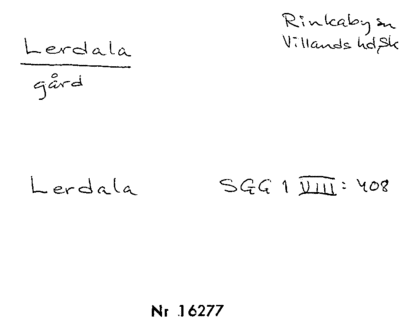 Lerdala
gård
Rinkaby sn
Villands hd, Sk
Lerdala SGG 1 VIII: 408
Nr 16277